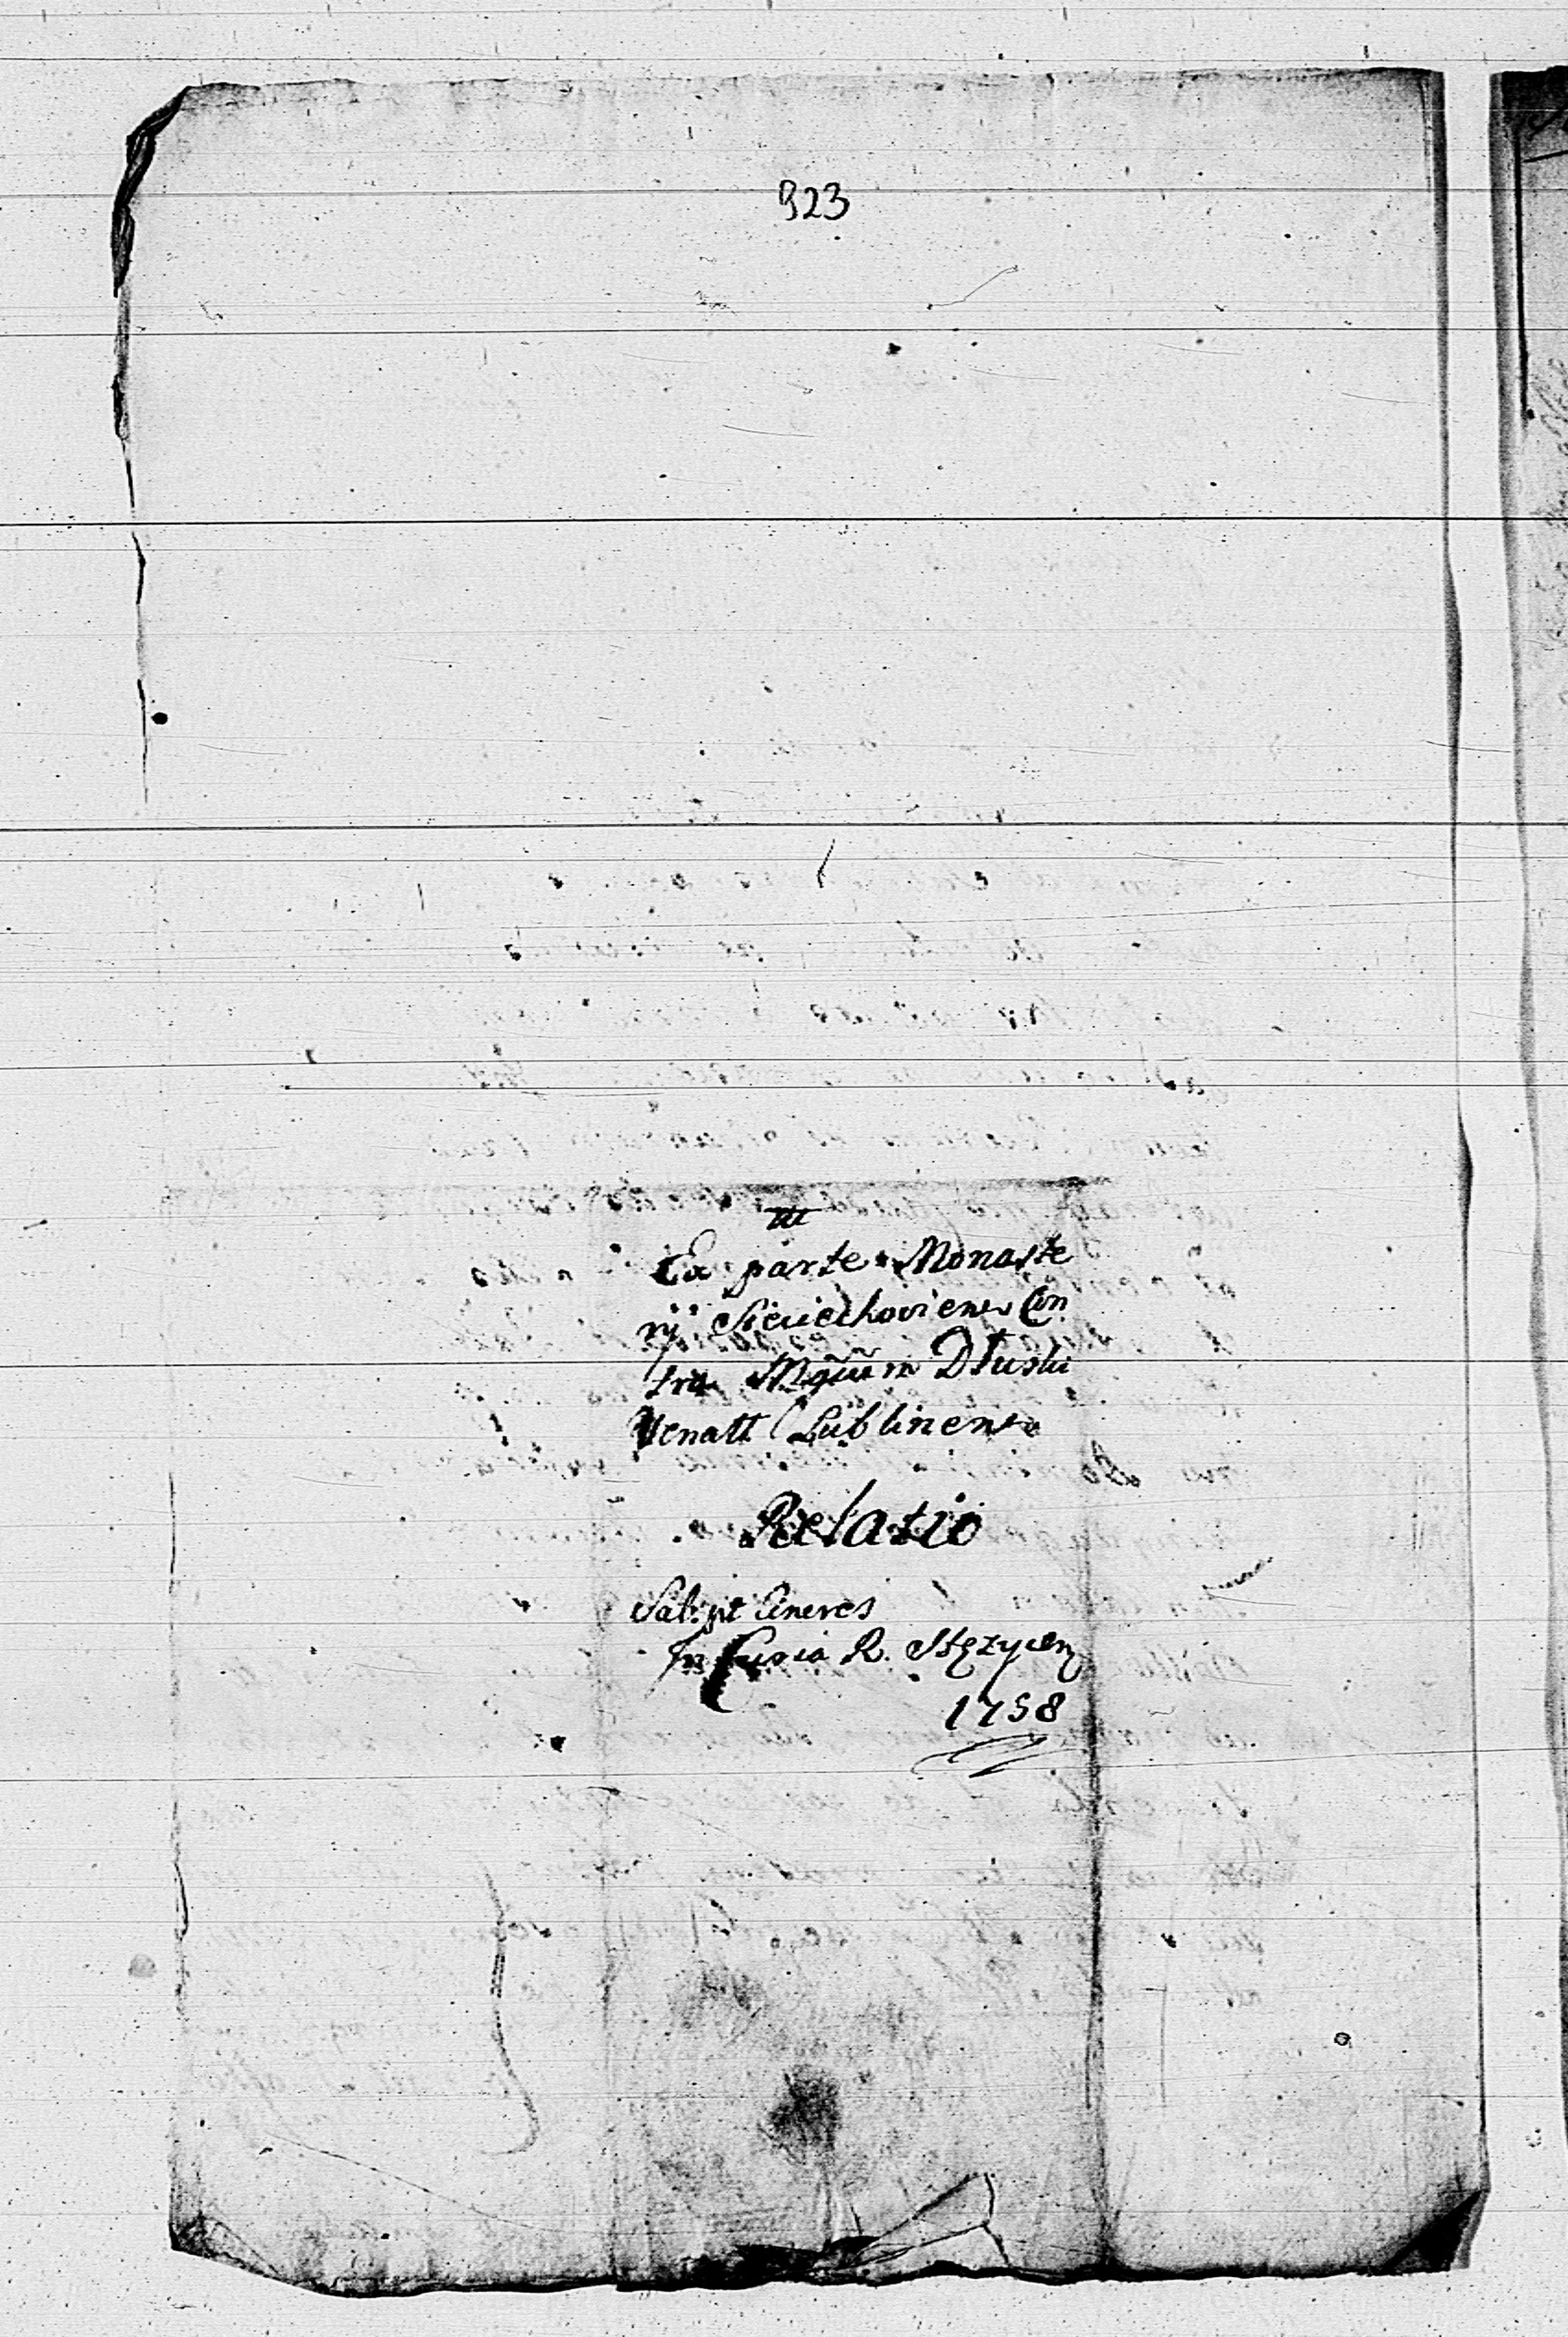 923
Ex parte Monaste
rij Sieciechoviens Con
tra Mgñum Dłuski
Venatt Lublinens
Relatio
Sab: pt Cineres
In Curia R. Stężycen
1758